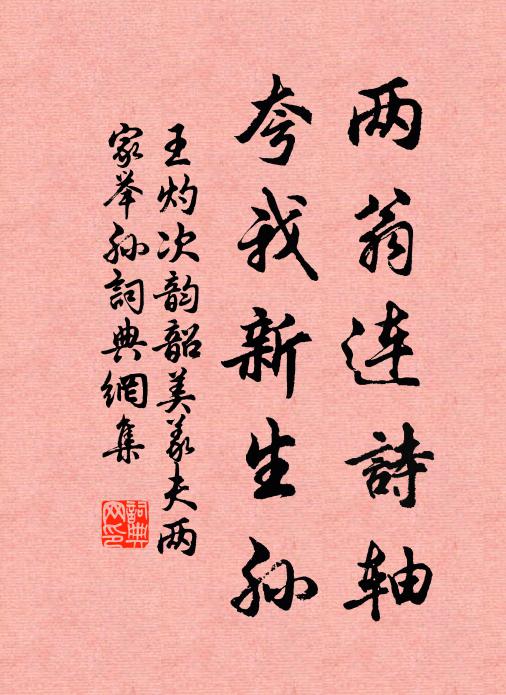 两翁连詩轴
夸我新生孙
王灼次韵韶美义夫两
家举孙詞典網集
詞典网印